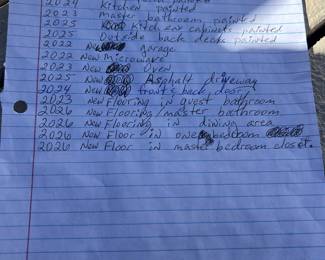 2024 Kitchen painted
2023 master bathroom painted
2025 Kitchen cabinets painted
2025 Outside back decks painted
2022 New garage
2022 New microwave
2023 New oven
2025 New Asphalt driveway
2024 New front & back door
2023 New Flooring in guest bathroom
2026 New Flooring/master bathroom
2026 New Flooring in dining area
2026 New Floor in one bedroom
2026 New Floor in master bedroom closet.